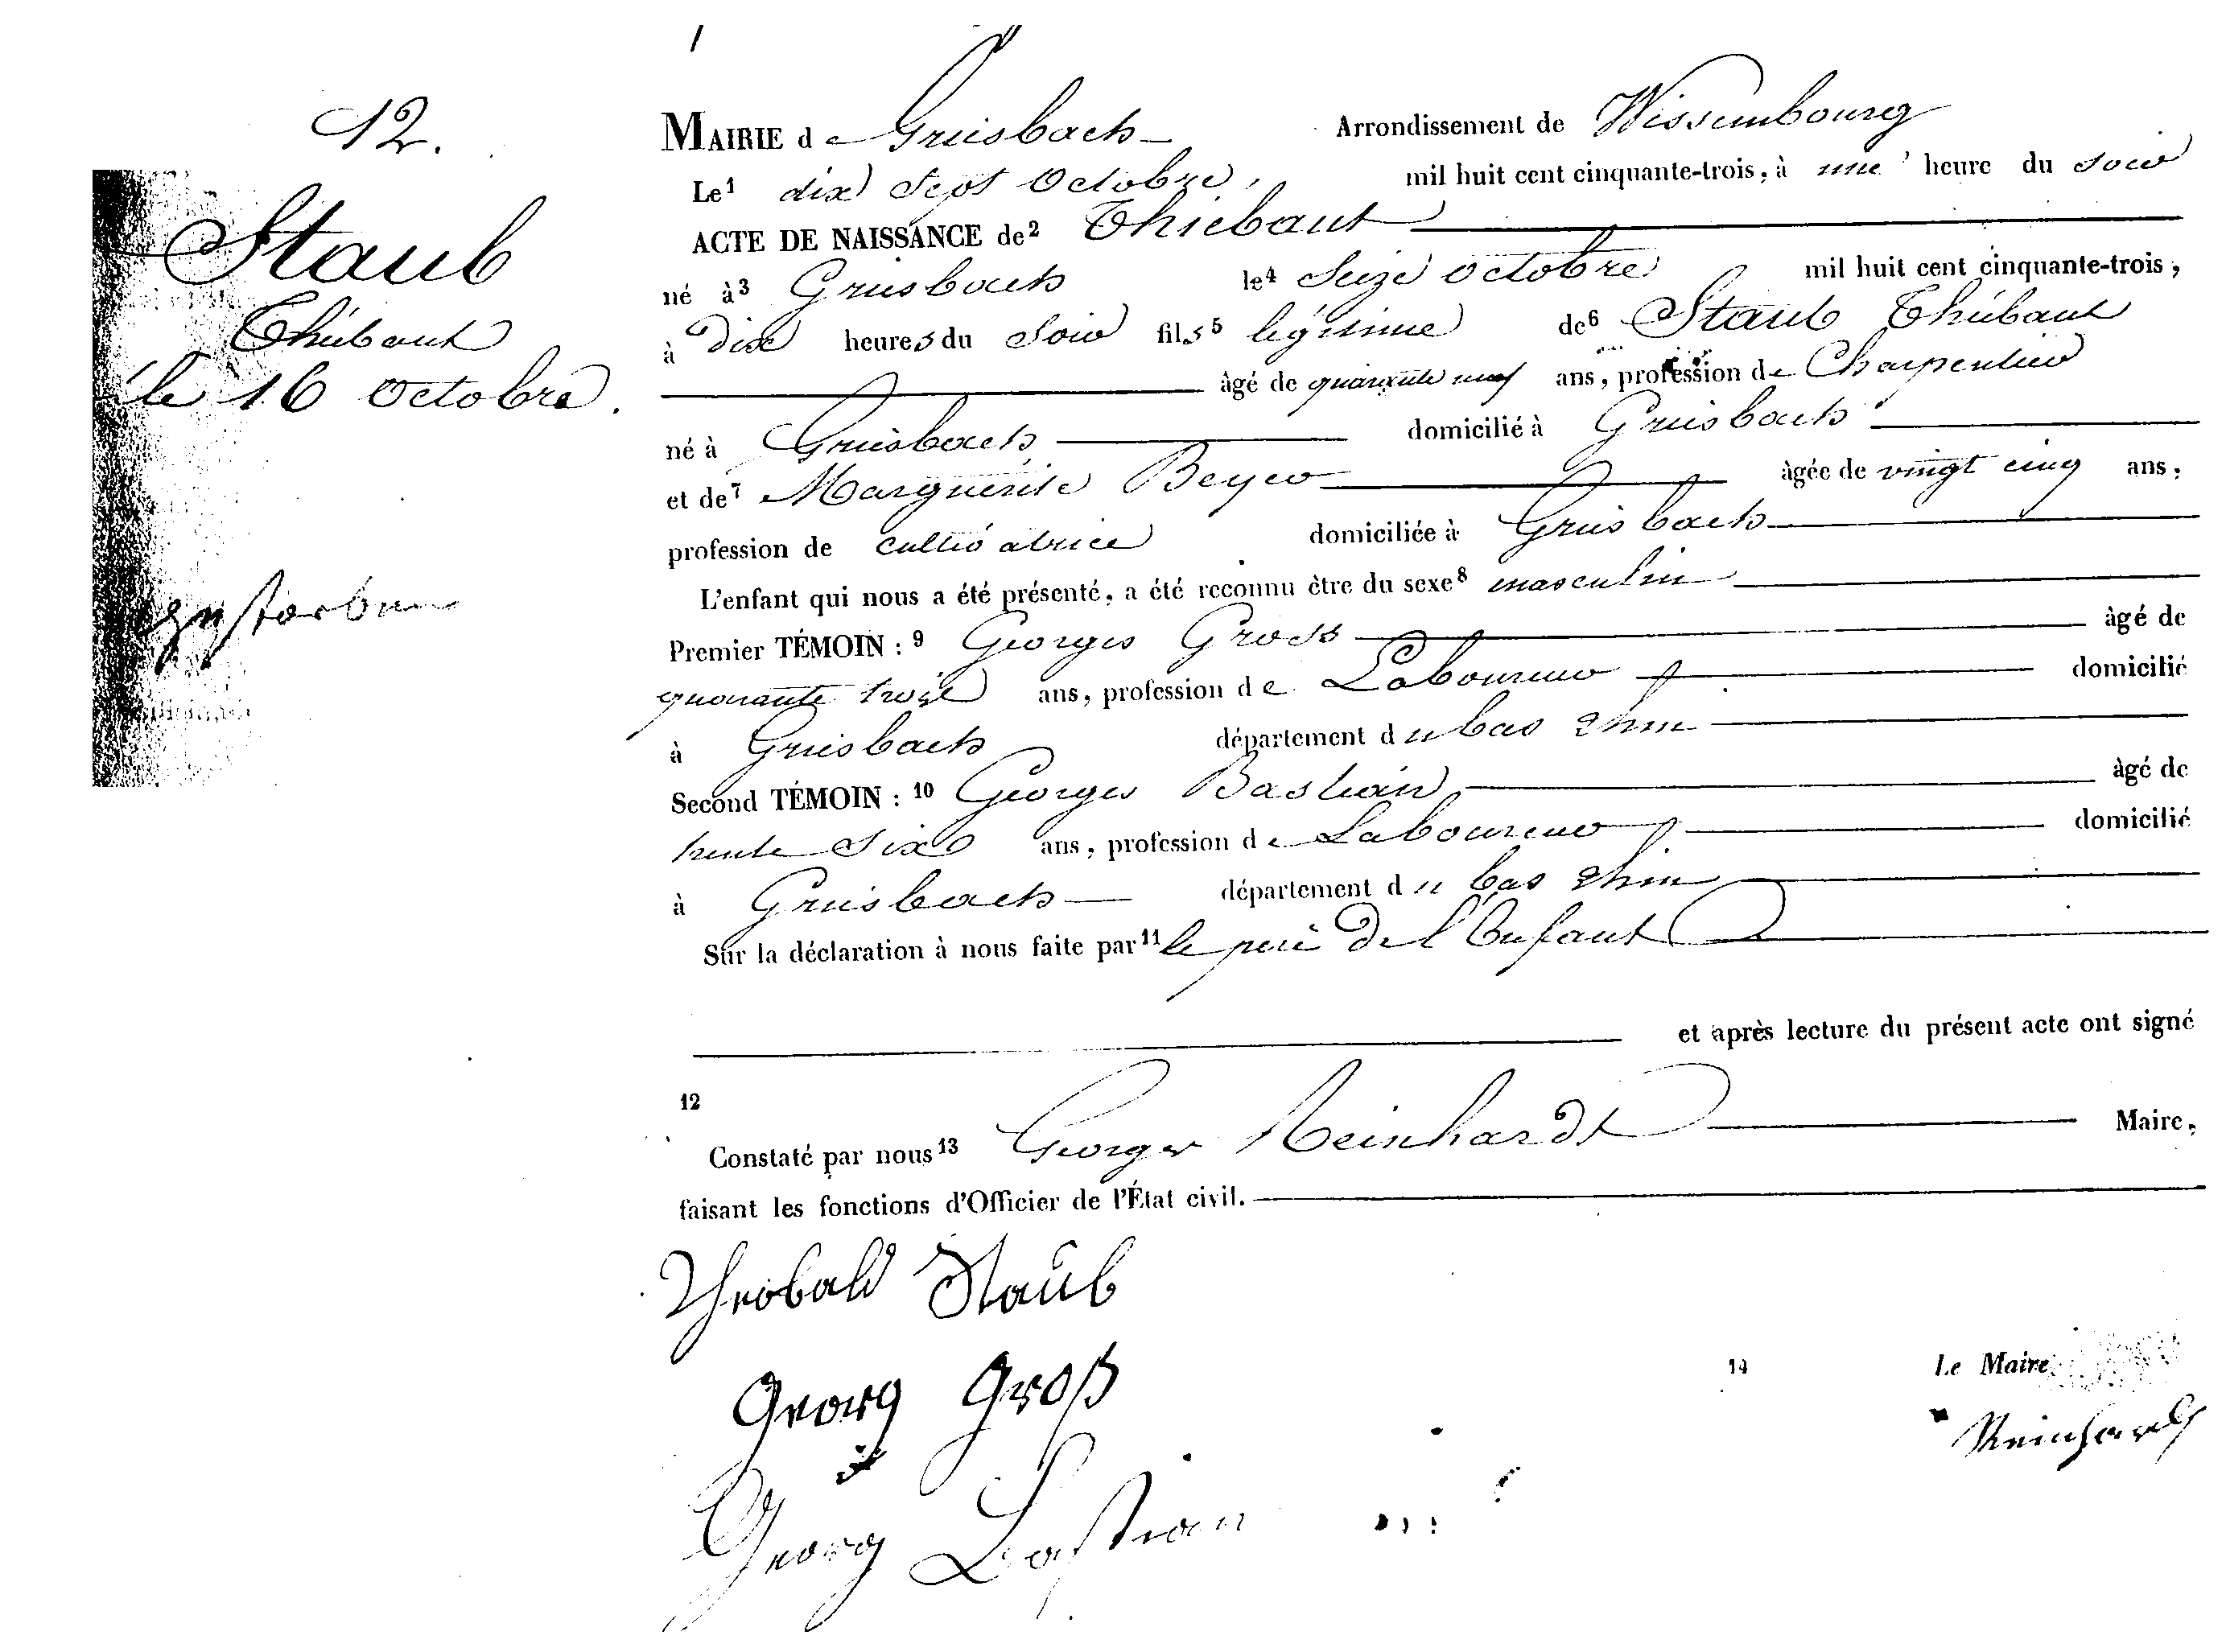 12.
Staub
Thiébaut
le 16 Octobre.
gestorben
MAIRIE de Griesbach Arrondissement de Wissembourg
Le 1 dix Sept Octobre, mil huit cent cinquante-trois, à une heure du Soir
ACTE DE NAISSANCE de 2 Thiebaut
né à 3 Griesbach le 4 Seize octobre mil huit cent cinquante-trois,
à Dix heures du Soir fils 5 légitime de 6 Staub Thiébaut
âgé de quarante neuf ans, profession de Charpentier
né à Griesbach domicilié à Griesbach
et de 7 Marguérite Beyer âgée de vingt cinq ans,
profession de cultivatrice domiciliée à Griesbach
L'enfant qui nous a été présenté, a été reconnu être du sexe 8 masculin
Premier TÉMOIN : 9 Georges Gross âgé de
quarante trois ans, profession de Laboureur domicilié
à Griesbach département du bas Rhin
Second TÉMOIN : 10 Georges Bastian âgé de
trente Six ans, profession de Laboureur domicilié
à Griesbach département du bas Rhin
Sur la déclaration à nous faite par 11 le père de l'Enfant
et après lecture du présent acte ont signé
12
Constaté par nous 13 Georges Reinhardt Maire,
faisant les fonctions d'Officier de l'État civil.
Theobald Staub
Georg Groß
14 Le Maire
Reinhardt
Georg Bastian